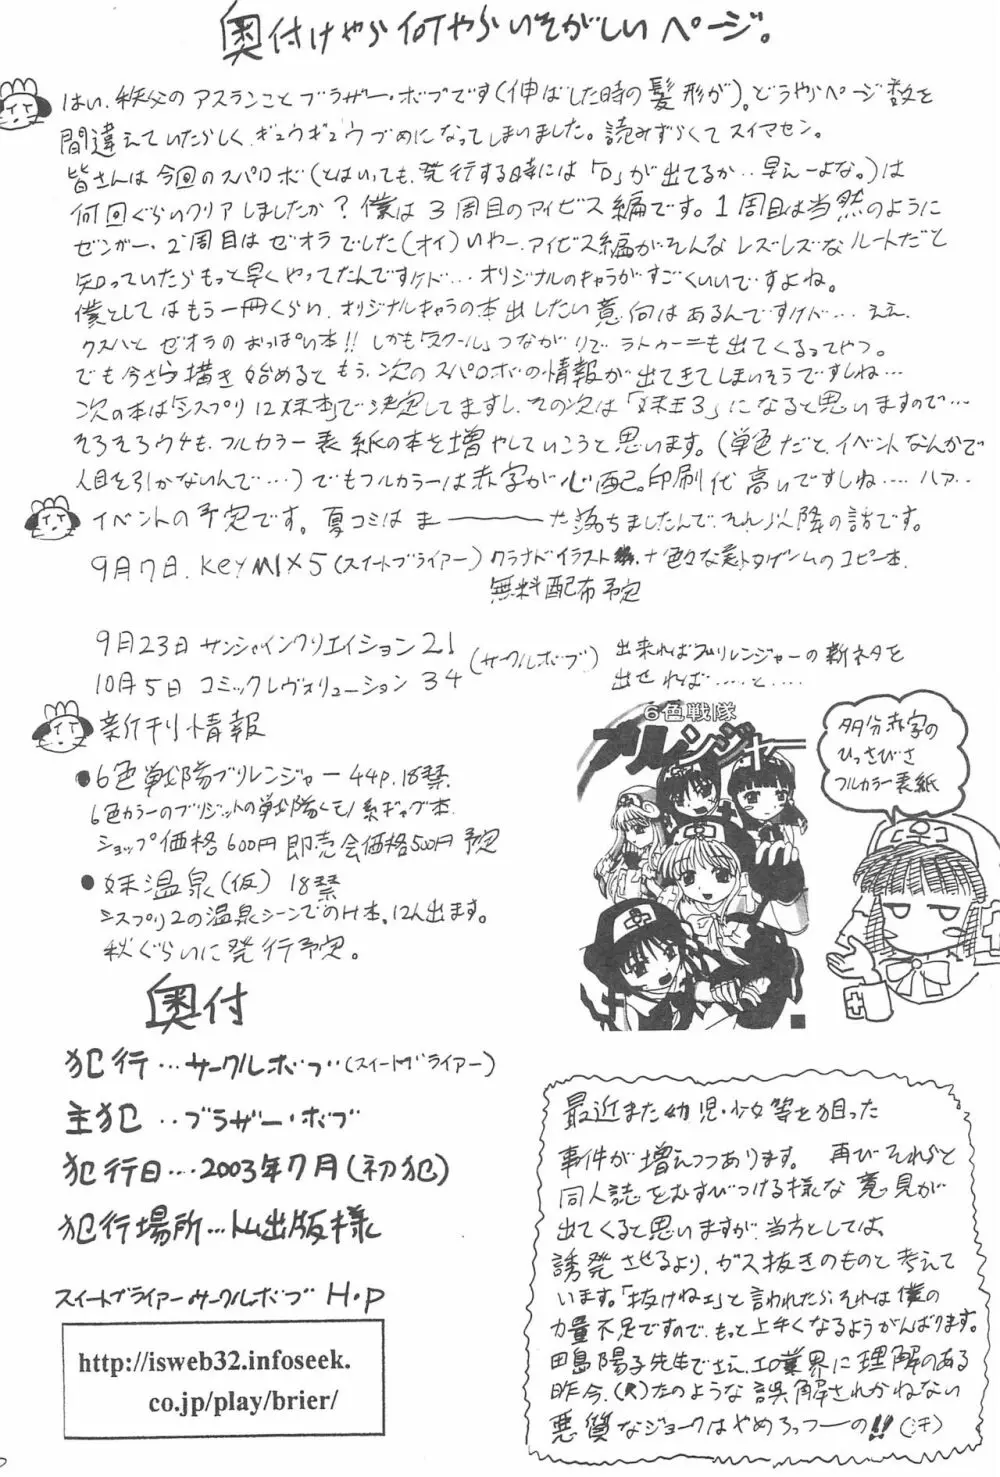 奥付けやら何やらいそがしいページ。
はい、秩父のアスランことブラザー・ボブです(伸ばした時の髪形が)。どうやらページ数を
間違えていたらしく、ギュウギュウづめになってしまいました。読みずらくてスイマセン。
皆さんは今回のスパロボ(とはいっても、発行する時には「D」が出てるか‥早えーよな。)は
何回ぐらいクリアしましたか？僕は3周目のアイビス編です。1周目は当然のように
ゼンガー、2周目はゼオラでした(オイ)いわー、アイビス編がそんなレズレズなルートだと
知っていたらもっと早くやってたんですけド…オリジナルのキャラがすごくいいですよね。
僕としてはもう一冊くらい、オリジナルキャラの本出したい意向はあるんですけド…ええ、
クスハとゼオラのおっぱい本!!しかも「スクール」つながりでラトゥーニも出てくるってやつ。
でも今さら描き始めるともう、次のスパロボの情報が出てきてしまいそうですしね…
次の本は「シスプリ12妹本」で決定してますし、その次は「妹王3」になると思いますので…
そろそろウチも、フルカラー表紙の本を増やしていこうと思います。(単色だと、イベントなんかで
人目を引かないんで…)でもフルカラーは赤字が心配。印刷代高いですしね…ハァ‥
イベントの予定です。夏コミはまーーーた落ちましたんで、それ以降の話です。
9月7日、KeyMIX5(スイートブライアー)クラナドイラスト集+色々な美少女ゲームのコピー本、
無料配布予定
9月23日 サンシャインクリエイション21
10月5日 コミックレヴォリューション34
(サークルボブ)
出来ればブリレンジャーの新ネタを
出せれば……と……
新刊情報
●6色戦隊ブリレンジャー 44p.18禁
6色カラーのブリジットの戦隊モノ系ギャグ本
ショップ価格600円 即売会価格500円予定
●妹温泉(仮) 18禁
シスプリ2の温泉シーンでのH本。12人出ます。
秋ぐらいに発行予定。
6色戦隊
ブリレンジャー
多分赤字の
ひっさびさ
フルカラー表紙
奥付
犯行…サークルボブ(スイートブライアー)
主犯‥ブラザー・ボブ
犯行日…2003年7月(初犯)
犯行場所…トム出版様
スイートブライアーサークルボブ H・P
http://isweb32.infoseek.
co.jp/play/brier/
最近また幼児・少女等を狙った
事件が増えつつあります。再びそれらと
同人誌をむすびつける様な意見が
出てくると思いますが、当方としては、
誘発させるより、ガス抜きのものと考えて
います。「抜けねェ」と言われたら、それは僕の
力量不足ですので、もっと上手くなるようがんばります。
田島陽子先生でさえ、エロ業界に理解のある
昨今、のような誤解されかねない
悪質なジョークはやめろっつーの!!(汗)